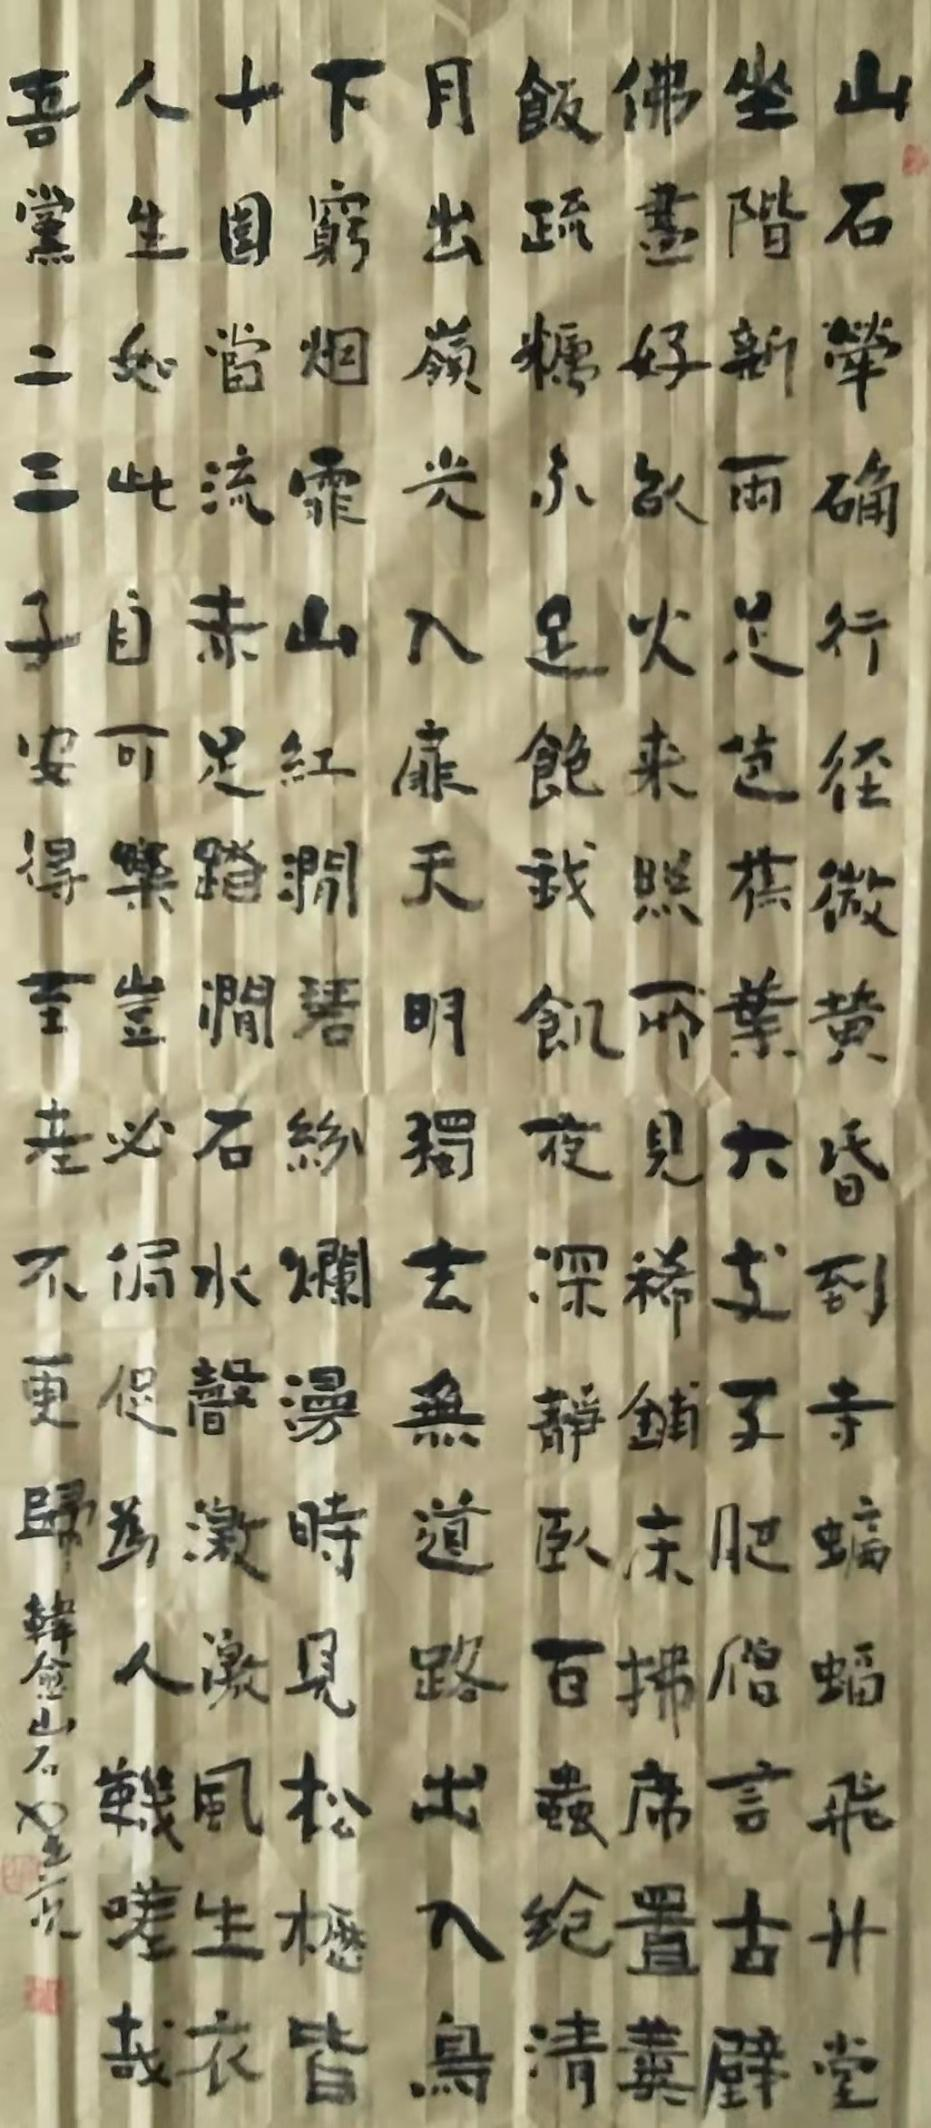 山石犖确行径微黄昏到寺蝙蝠飛升堂
坐階新雨足芭蕉葉大支子肥僧言古壁
佛畫好以火来照所見稀鋪床拂席置羹
飯疏糲亦足飽我飢夜深靜臥百蟲绝清
月出嶺光入扉天明獨去無道路出入鳥
下窮烟霏山紅澗碧紛爛漫時見松櫪皆
十圍當流赤足踏澗石水聲激激風生衣
人生如此自可樂豈必侷促為人鞿嗟哉
吾黨二三子安得至老不更歸韓愈山石